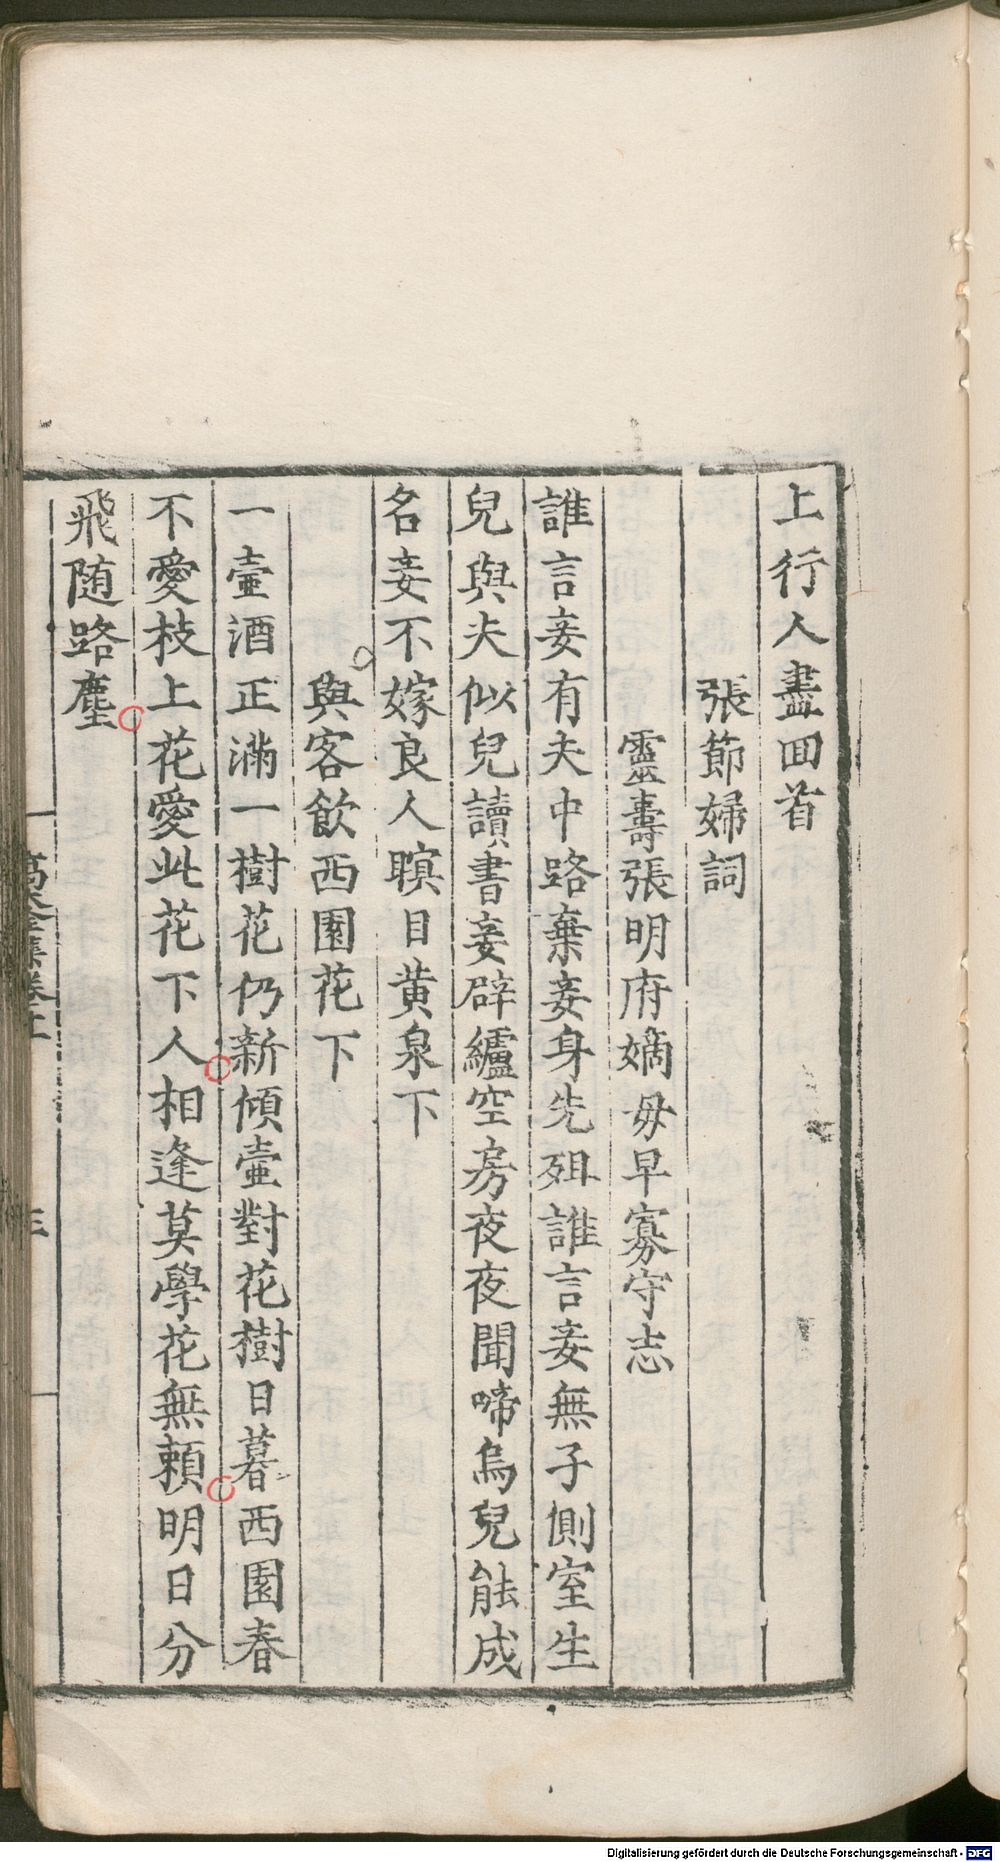 上行人盡回首
張節婦詞
靈壽張明府嫡母早寡守志
誰言妾有夫中路棄妾身先殂誰言妾無子側室生
兒與夫似兒讀書妾辟纑空房夜夜聞啼烏兒能成
名妾不嫁良人瞑目黄泉下
與客飲西園花下
一壷酒正滿一樹花仍新傾壷對花樹日暮西園春
不愛枝上花愛此花下人相逢莫學花無頼明日分
飛随路塵
Digitalisierung gefördert durch die Deutsche Forschungsgemeinschaft - DFG